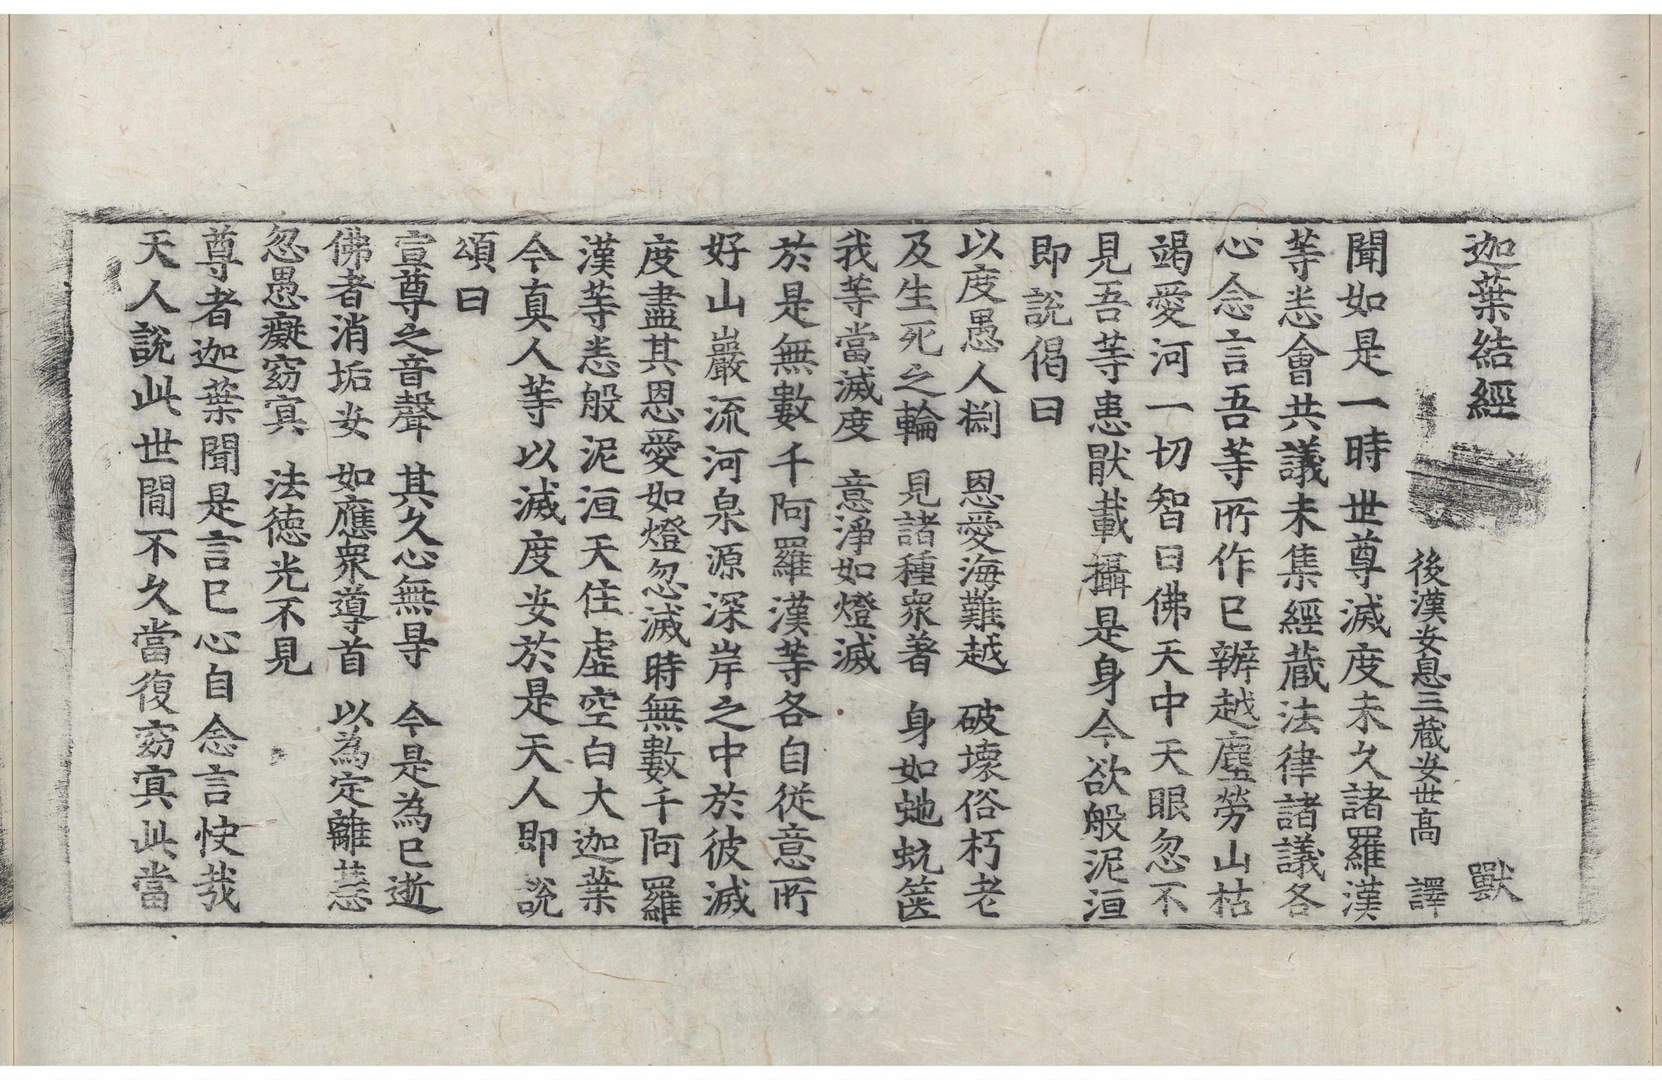 迦葉結經 獸
後漢安息三藏安世高 譯
聞如是一時世尊滅度未久諸羅漢
等悉會共議未集經藏法律諸議各
心念言吾等所作已辦越塵勞山枯
竭愛河一切智曰佛天中天眼忽不
見吾等患猒載攝是身今欲般泥洹
即說偈曰
以度愚人捌 恩愛海難越 破壞俗朽老
及生死之輪 見諸種眾著 身如虵蚖篋
我等當滅度 意淨如燈滅
於是無數千阿羅漢等各自從意所
好山巖流河泉源深岸之中於彼滅
度盡其恩愛如燈忽滅時無數千阿羅
漢等悉般泥洹天住虛空白大迦葉
今真人等以滅度安於是天人即說
頌曰
宣尊之音聲 其久心無㝵 今是為已逝
佛者消垢安 如應眾導首 以為定離慧
忽愚癡窈㝠 法德光不見
尊者迦葉聞是言已心自念言快哉
天人說此世間不久當復窈㝠此當